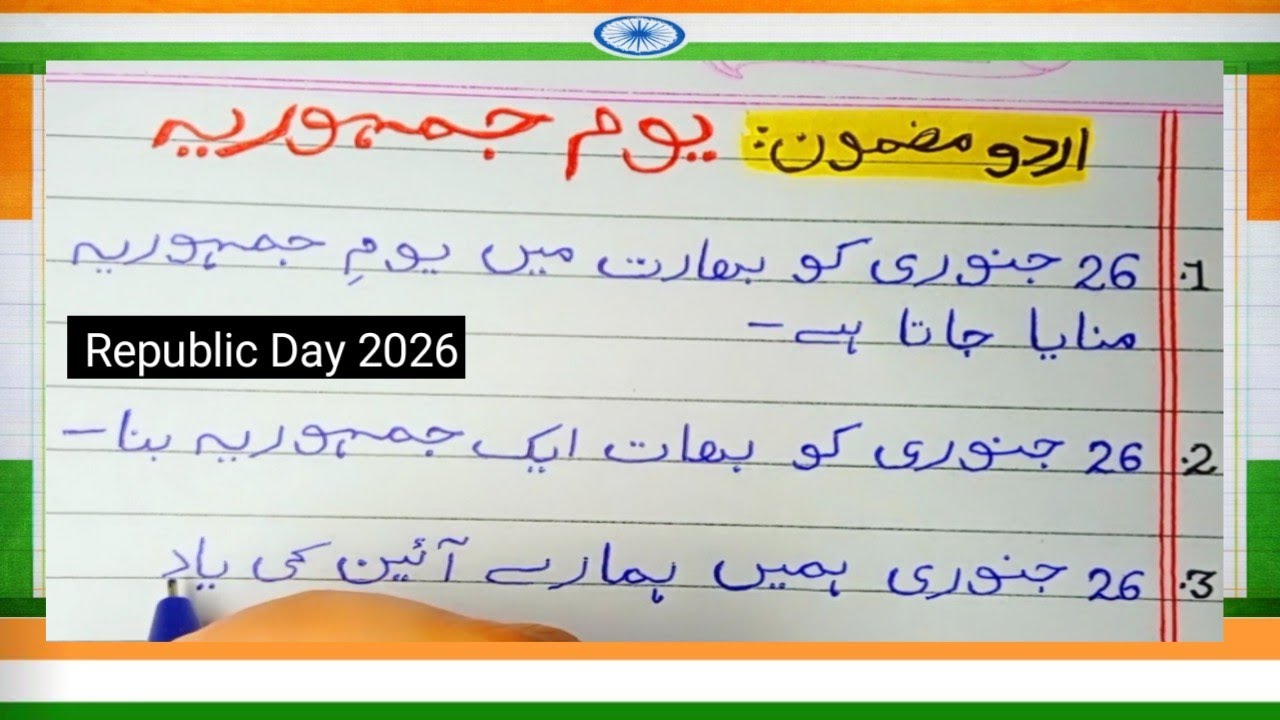 اردو مضمون: یوم جمہوریہ
1. 26 جنوری کو بھارت میں یومِ جمہوریہ
منایا جاتا ہے-
Republic Day 2026
2. 26 جنوری کو بھات ایک جمہوریہ بنا-
3. 26 جنوری ہمیں ہمارے آئین کی یاد